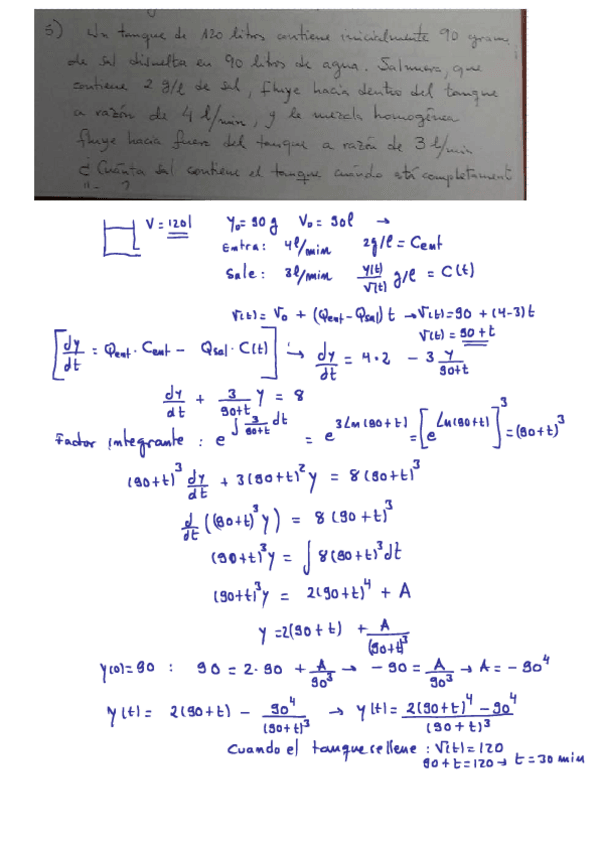 5) Un tanque de 120 litros contiene inicialmente 90 gram.
de sal disuelta en 90 litros de agua. Salmuera, que
contiene 2 g/l de sal, fluye hacia dentro del tanque
a razón de 4 l/min, y la mezcla homogénea
fluye hacia fuera del tanque a razón de 3 l/min
¿Cuánta sal contiene el tanque cuándo está completament
V = 120l Y₀ = 90g V₀ = 90l →
Entra: 4l/min 2g/l = Cent
Sale: 3l/min Y(t)/V(t) g/l = C(t)
V(t) = V₀ + (Qent - Qsal) t → V(t) = 90 + (4-3)t
V(t) = 90 + t
[dy/dt = Qent · Cent - Qsal · C(t)] → dy/dt = 4·2 - 3 y/90+t
dy/dt + 3/90+t y = 8
Factor integrante: e^∫ 3/90+t dt = e^3Ln(90+t) = [e^Ln(90+t)]^3 = (90+t)^3
(90+t)^3 dy/dt + 3(90+t)^2 y = 8(90+t)^3
d/dt ((90+t)^3 y) = 8(90+t)^3
(90+t)^3 y = ∫ 8(90+t)^3 dt
(90+t)^3 y = 2(90+t)^4 + A
y = 2(90+t) + A/(90+t)^3
y(0)=90 : 90 = 2·90 + A/90^3 → -90 = A/90^3 → A = -90^4
y(t) = 2(90+t) - 90^4/(90+t)^3 → y(t) = 2(90+t)^4 - 90^4/(90+t)^3
Cuando el tanque se llene : V(t) = 120
90 + t = 120 → t = 30 min